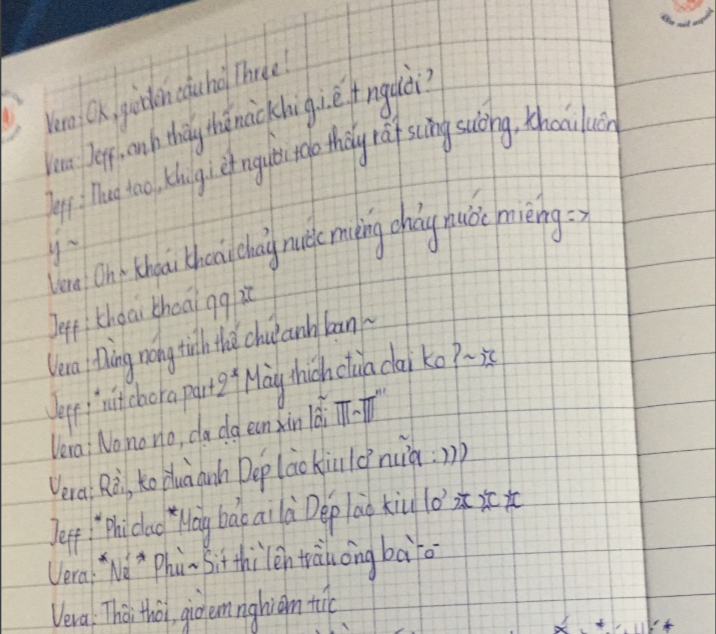 Vera: Ok, giờ đến câu hỏi Three!
Vera: Jeff, anh thấy thế nào khi g.i.ế.t người?
Jeff: Thưa tao, khi g.i.ết người tao thấy rất sung sướng, khoái luôn
ý~
Vera: Oh~ khoái khoái chảy nước miếng chảy nước miếng =>
Jeff: khoái khoái qq
Vera: Đừng nóng tính thế chứ anh bạn~
Jeff: *rút chora part 2* Mày thích đùa dai ko?~
Vera: No no no, dạ dạ em xin lỗi T^T~T^T
Vera: Rồi, ko đùa anh Dép lào kiu lơ nữa :)))
Jeff: *Phi dao* Mày bảo ai là Dép lào kiu lơ
Vera: *Né* Phù~ Sít thì lên trầu ông bà -o-
Vera: Thôi thôi, giờ em nghiêm túc